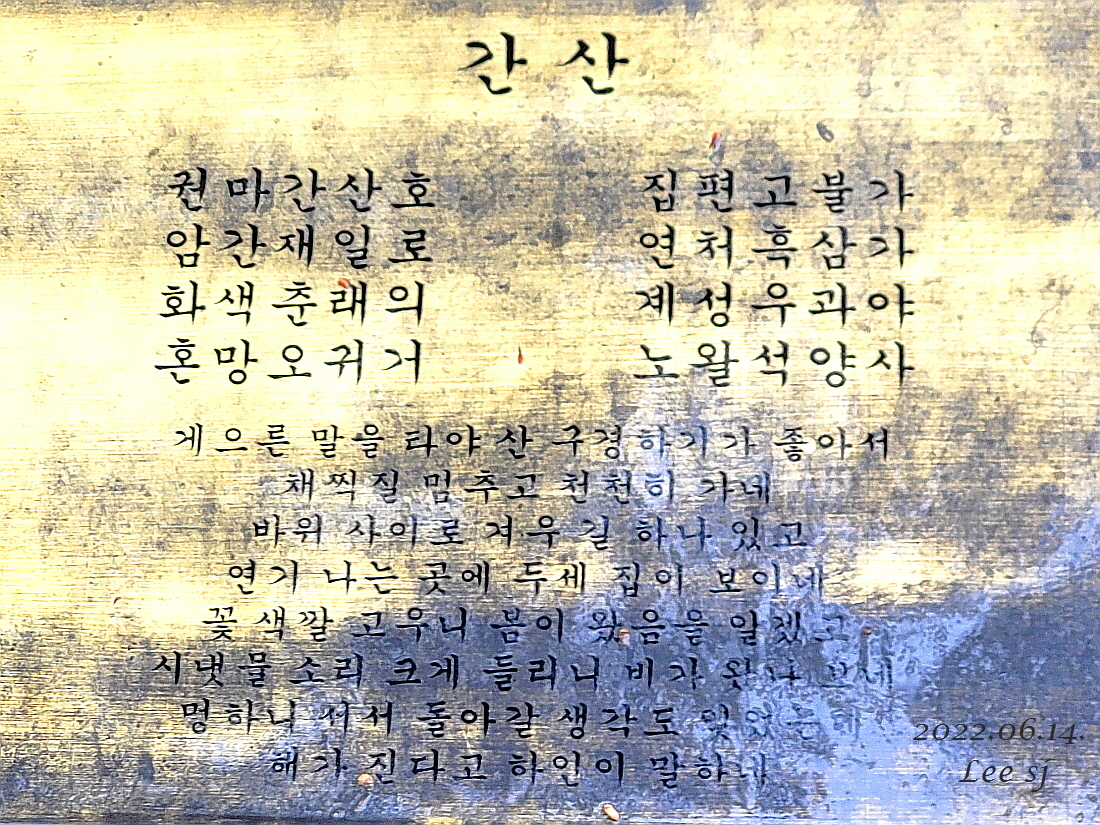 간 산
권마간산호 집편고불가
암간재일로 연처흑삼가
화색춘래의 계성우과야
혼망오귀거 노왈석양사
게으른 말을 타야 산 구경하기가 좋아서
채찍질 멈추고 천천히 가네
바위 사이로 겨우 길 하나 있고
연기 나는 곳에 두세 집이 보이네
꽃 색깔 고우니 봄이 왔음을 알겠고
시냇물 소리 크게 들리니 비가 왔나 보네
멍하니 서서 돌아갈 생각도 잊었는데
해가 진다고 하인이 말하네
2022.06.14.
Lee sj